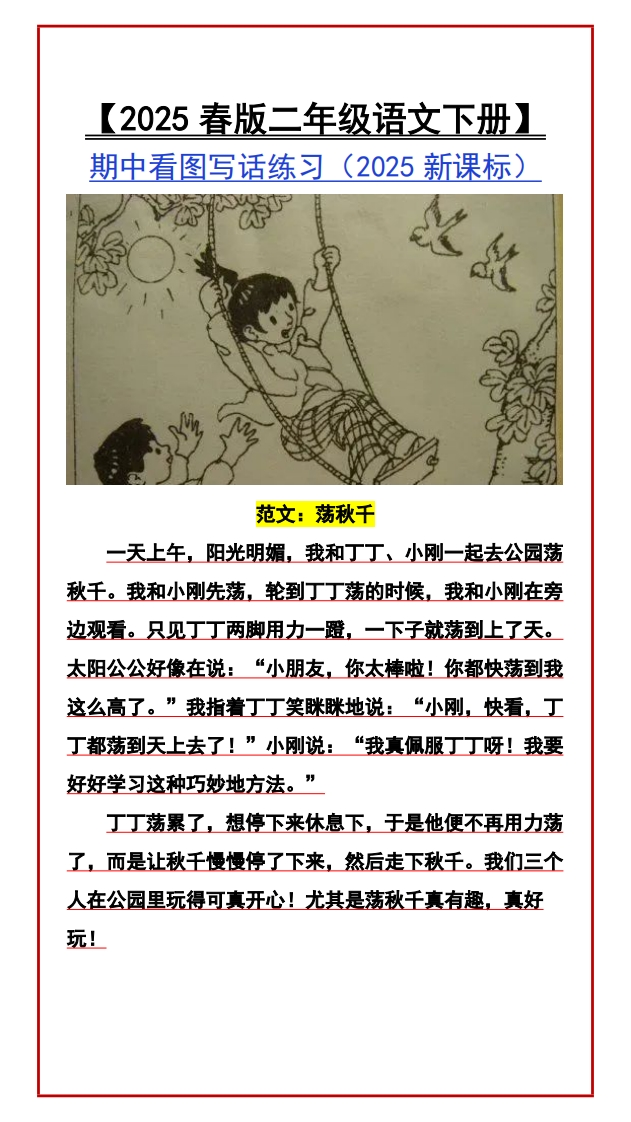 【2025 春版二年级语文下册】
期中看图写话练习（2025 新课标）
范文：荡秋千
一天上午，阳光明媚，我和丁丁、小刚一起去公园荡
秋千。我和小刚先荡，轮到丁丁荡的时候，我和小刚在旁
边观看。只见丁丁两脚用力一蹬，一下子就荡到上了天。
太阳公公好像在说：“小朋友，你太棒啦！你都快荡到我
这么高了。”我指着丁丁笑眯眯地说：“小刚，快看，丁
丁都荡到天上去了！”小刚说：“我真佩服丁丁呀！我要
好好学习这种巧妙地方法。”
丁丁荡累了，想停下来休息下，于是他便不再用力荡
了，而是让秋千慢慢停了下来，然后走下秋千。我们三个
人在公园里玩得可真开心！尤其是荡秋千真有趣，真好
玩！